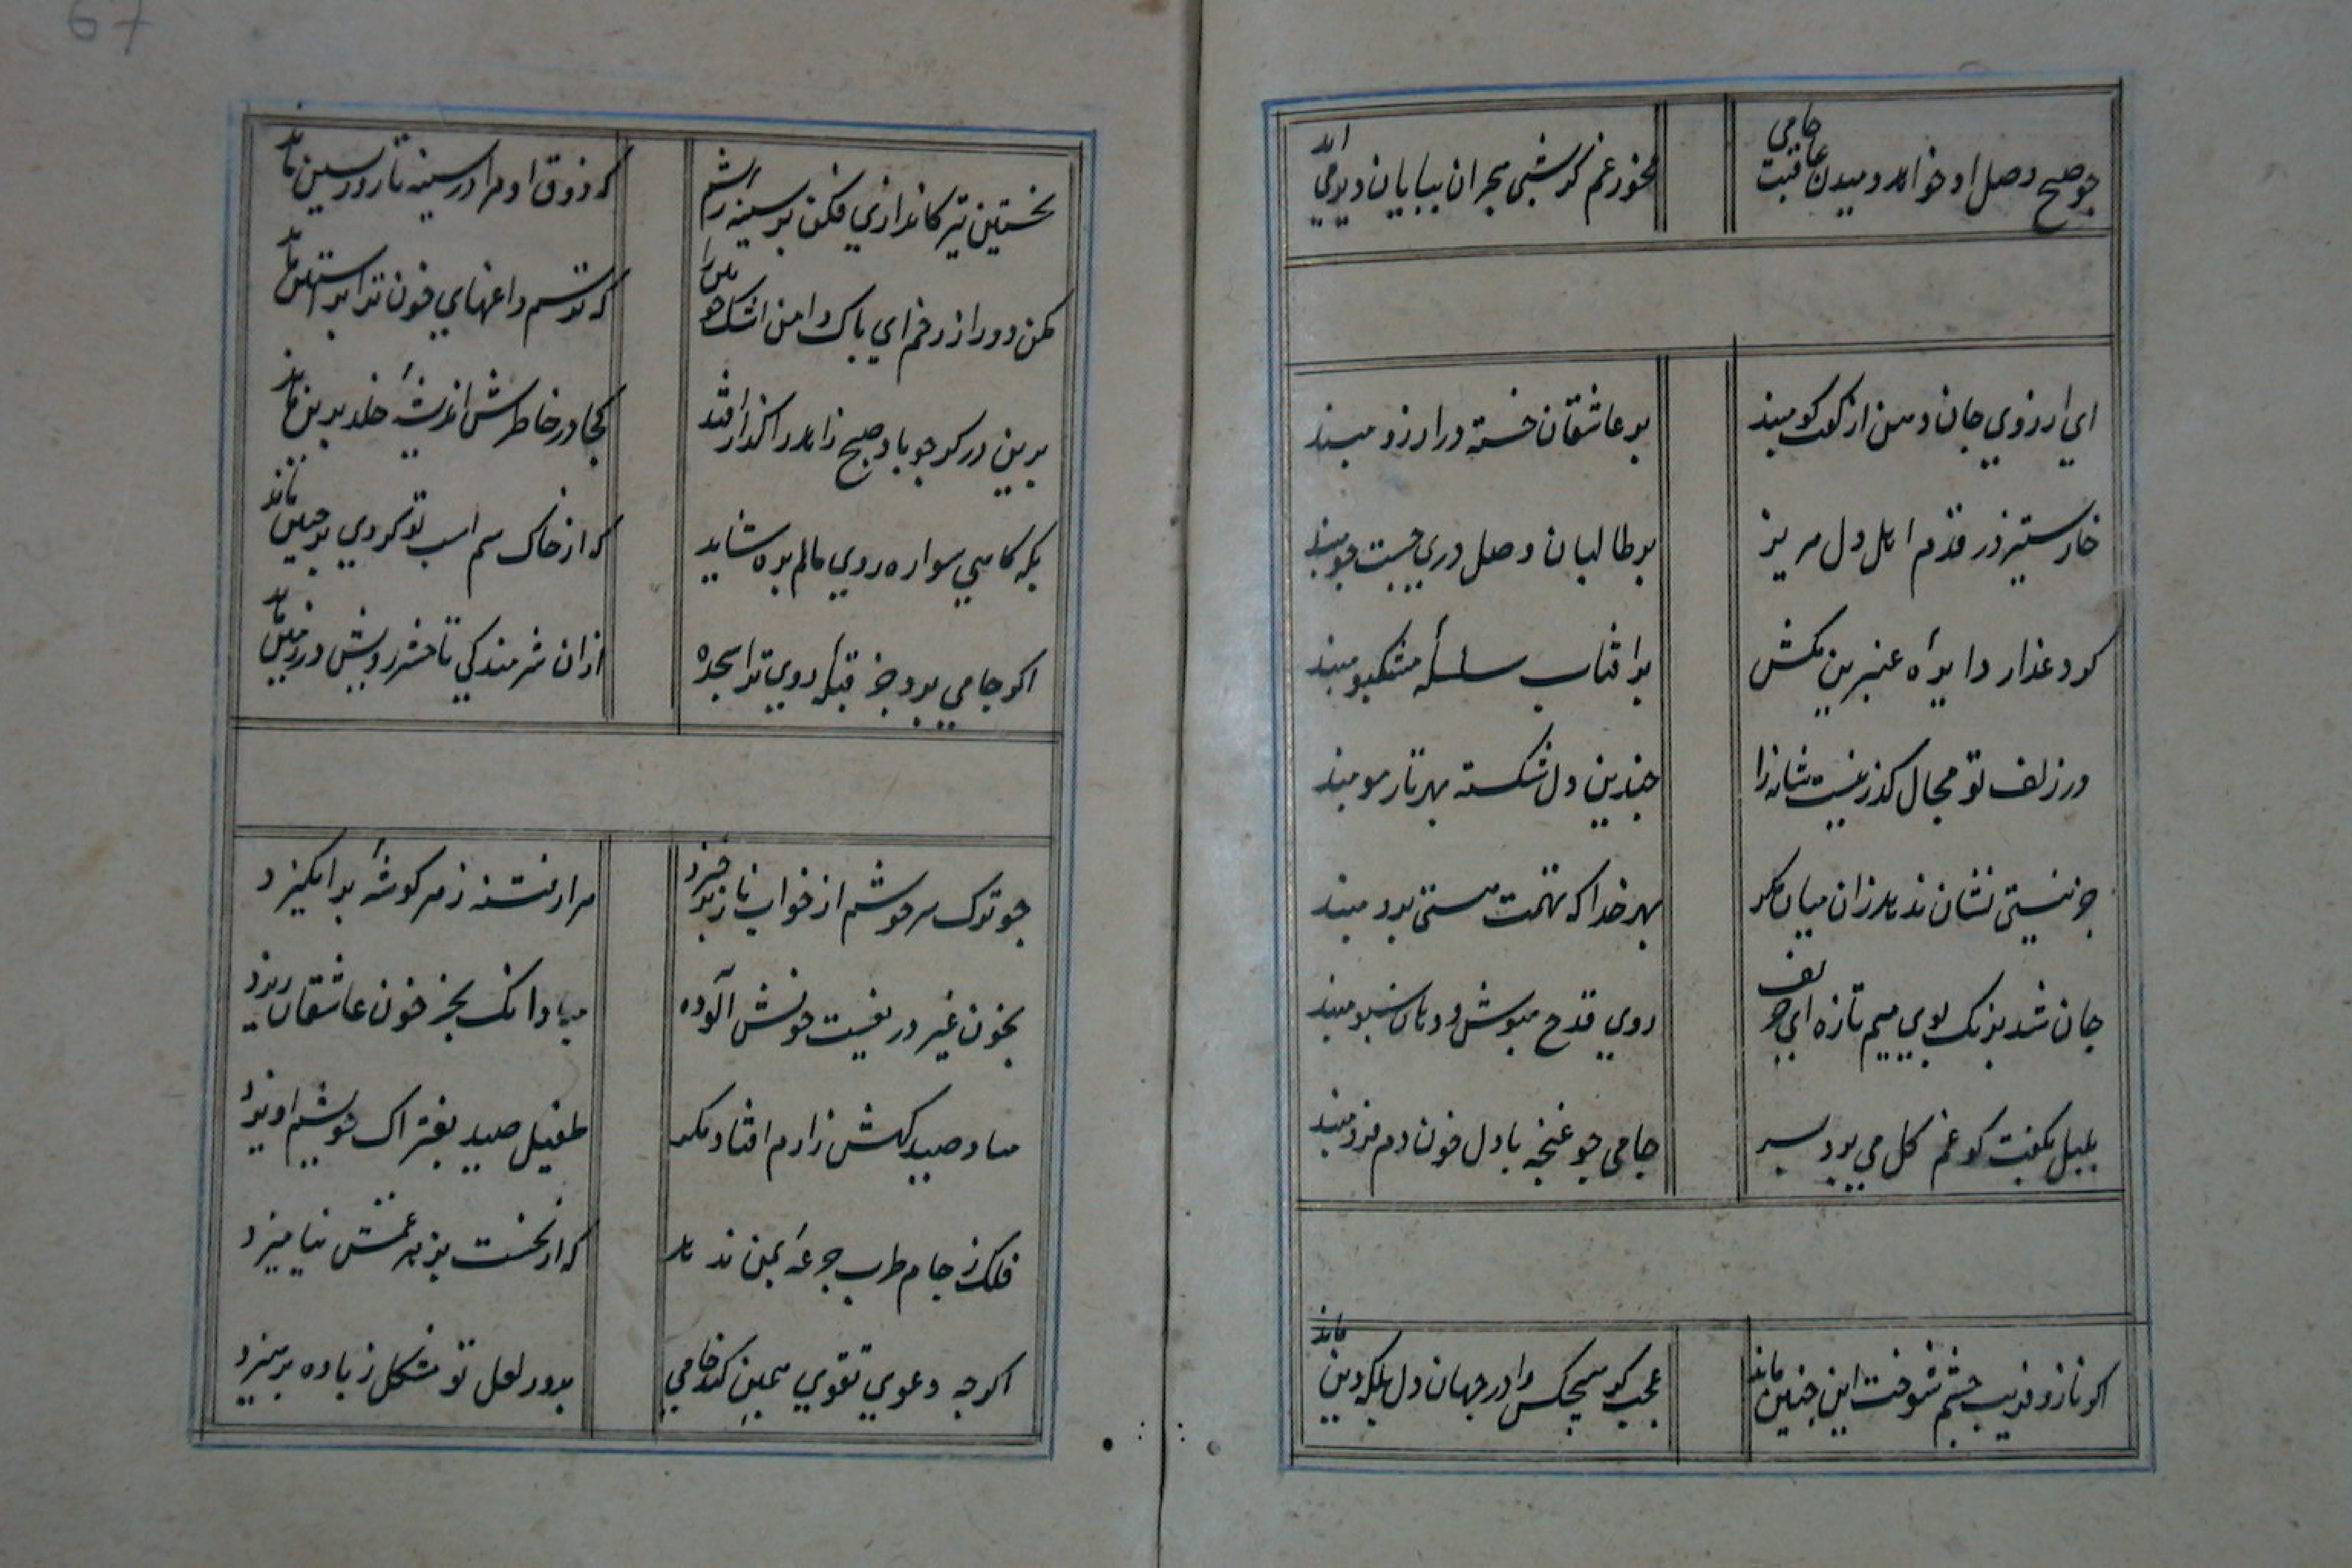 چو صبح وصل او خواهد دمیدن عاقبت جامی
مخور غم کر شب هجران بپایان دیر می اید
ای ارزوی جان و من از کفت کو مبند
بر عاشقان خسته در ارزو مبند
خار ستیز در قدم اهل دل مریز
بر طالبان وصل دری جست جو مبند
کرد عذار دایره عنبرین مکش
بر افتاب سلسله مشکبو مبند
در زلف تو مجال کذر نیست شانه را
جندین دل شکسته بهر تار مو مبند
جز نیستی نشان ندهد زان میان کمر
بهر خدا که تهمت هستی برو مبند
جان شد بزنک بوی میم تازه ای حریف
روی قدح مپوش و دهان سبو مبند
بلبل بکفت کو غم کل می برد بسر
جامی جو غنجه با دل خون دم فرو مبند
اکر ناز و فریب جشم شوخت اینجنین ماند
عجب کر هیجکس را در جهان دل بلکه دین ماند
67
نخستین تیر کاندازی فکن بر سینه ریشم
که ذوق او مرا در سینه تا روز پسین ماند
مکن دور از رخم ای پاک دامن اشک خونین را
که ترسم داغهای خون ترا بر استین ماند
برین در کر جو باد صبح زاهد را کذار افتد
کجا در خاطرش اندیشهٔ خلد برین ماند
بکه کامی سواره روی مالم بر ره شاید
که از خاک سم اسب تو کردی بر جبین ماند
اکر جامی برد جز قبلهٔ روی ترا سجده
ازان شرمندکی تا حشر رویش در زمین ماند
جو ترک سرخوشم از خواب ناز برخیزد
هزار فتنه ز هر کوشهٔ برانکیزد
بخون غیر دریغیست خونش آلوده
مبادا انک بجز خون عاشقان ریزد
صید کهش زارم افتاده مکر
طفیل صید بفتراک خویشم اویزد
فلک ز جام طرب جرعهٔ بمن ندهد
که از نخست بزهر غمش نیامیزد
اکرجه دعوی تقوی همین کند جامی
بدور لعل تو مشکل ز باده برهیزد